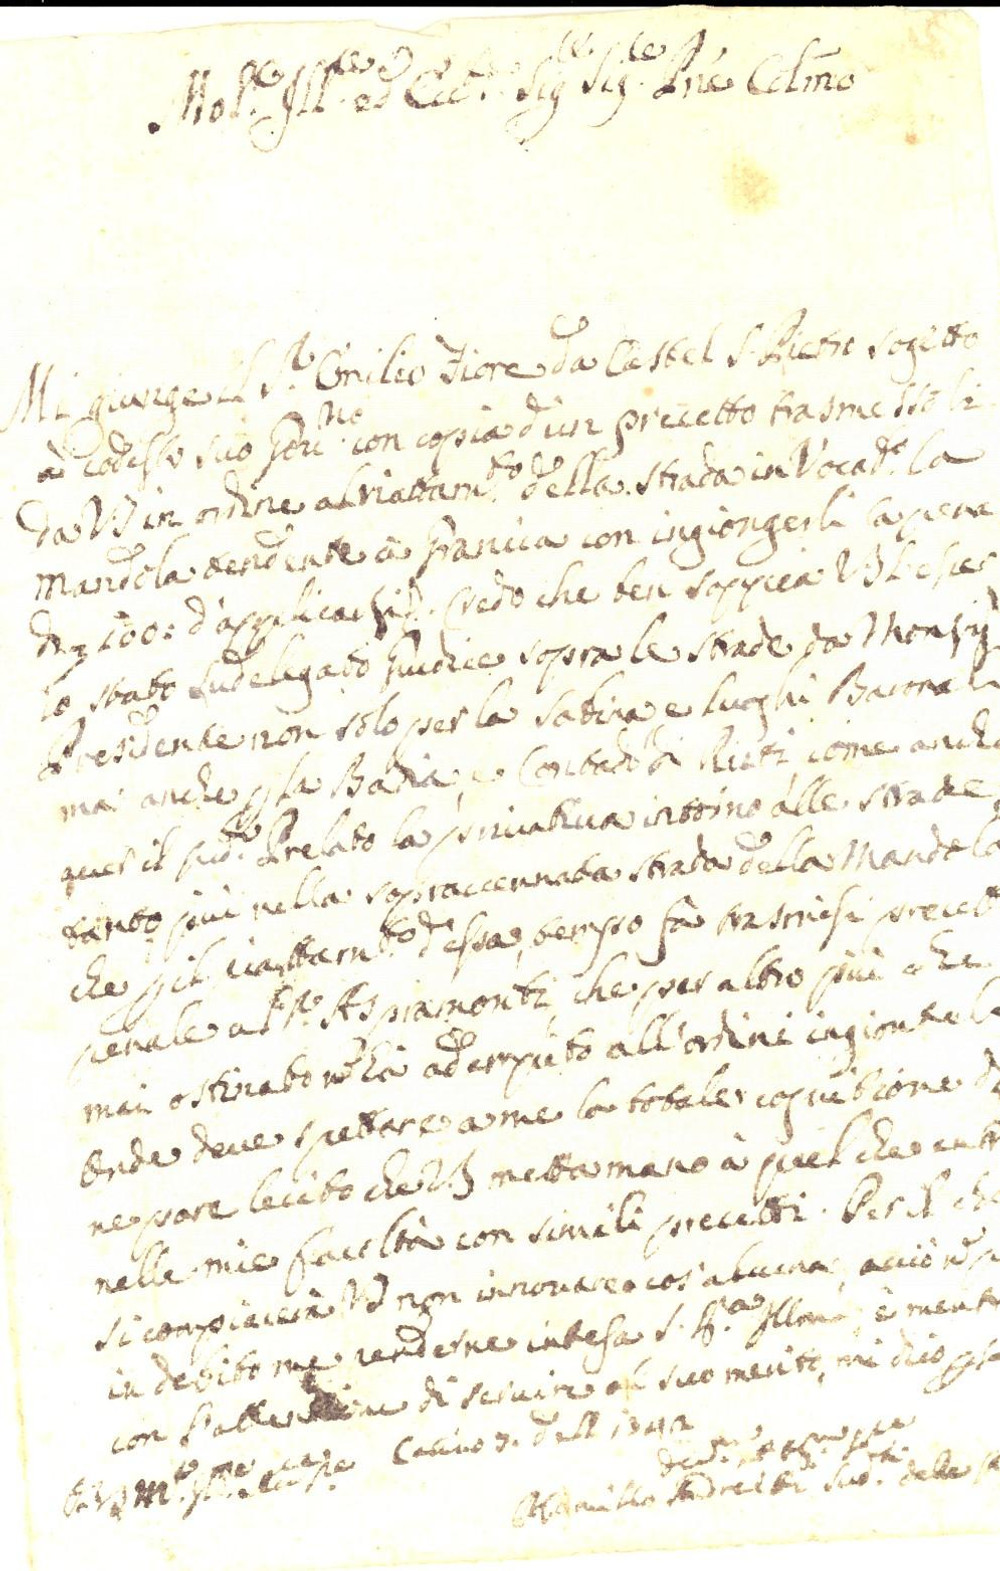 Mol.to Ill.re ed Ecc.te Sig.r Sig.re P.ne Col.mo
Mi giunge il S.r Emilio Fiore da Castel S. Pietro sogetto
à codesto suo Gov.no con copia d'un precetto trasmessoli
da VS in ordine al riattam.to della strada in Vocab.o la
Mandola tendente à Granica con ingiongerli la pena
di 100: d'applicarsi. Credo che ben sappia VS l'esser
lo stato sudelegato Giudice sopra le strade da Monsig
Presidente non solo per la Sabina e luoghi Baronali
ma anche p la Badia, e Contado di Rieti, come anche
quer il pred.o Prelato la privativa intorno alle strade,
tanto più nella sopraccennata strada della Mandola
che p il riattam.to d'essa, tempo fà trasmisi precett
penale a Aspramonti, che per altro più che
mai ostinato n hà adempito all'ordini ingiontoli
Onde deve spettare a me la totale cognitione d
ne pare lecito che VS metta mano à quel che entr
nelle mie facoltà con simili precetti. Per il che
si compiacerà VS non innovare cos'alcuna, acciò n s
in debito me renderne intesa S. S.a Ill.ma, e mentr
con l'attenzione di servire al suo merito, mi dico p
Di VS M.to Ill.re
Calvi 7.